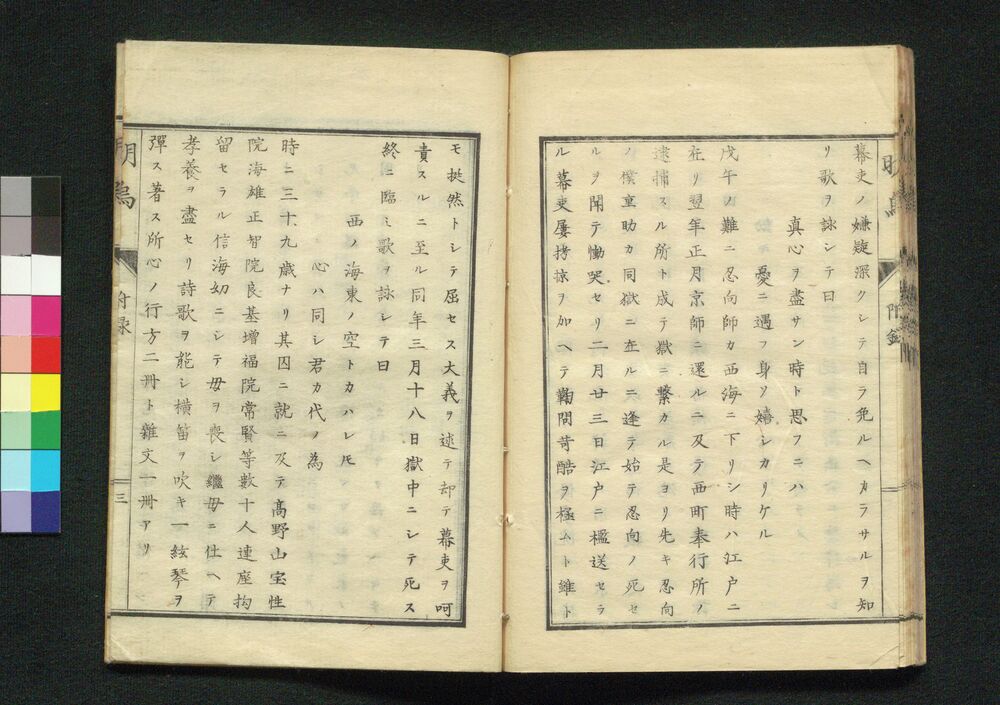 幕吏ノ嫌疑深クシテ自ラ免ルヘカラサルヲ知
リ歌ヲ詠シテ曰
真心ヲ盡サン時ト思フニハ
憂ニ遇フ身ソ嬉シカリケル
戊午ノ難ニ忍向師カ西海ニ下リシ時ハ江戸ニ
在リ翌年正月京師ニ還ルニ及テ西町奉行所ノ
逮捕スル所ト成テ獄ニ繋カル是ヨリ先キ忍向
ノ僕重助カ同獄ニ在ルニ逢テ始テ忍向ノ死セ
ルヲ聞テ慟哭セリ二月廿三日江戸ニ檻送セラ
ル幕吏屢拷掠ヲ加ヘテ鞫問苛酷ヲ極ムト雖ト
モ挺然トシテ屈セス大義ヲ述テ却テ幕吏ヲ呵
責スルニ至ル同年三月十八日獄中ニシテ死ス
終ニ臨ミ歌ヲ詠シテ曰
西ノ海東ノ空トカハレトモ
心ハ同シ君カ代ノ為
時ニ三十九歳ナリ其囚ニ就ニ及テ高野山宝性
院海雄正智院良基増福院常賢等數十人連座拘
留セラル信海幼ニシテ母ヲ喪シ繼母ニ仕ヘテ
孝養ヲ盡セリ詩歌ヲ能シ横笛ヲ吹キ一絃琴ヲ
彈ス著ス所心ノ行方二冊ト雜文一冊アリ
明烏
附録
三